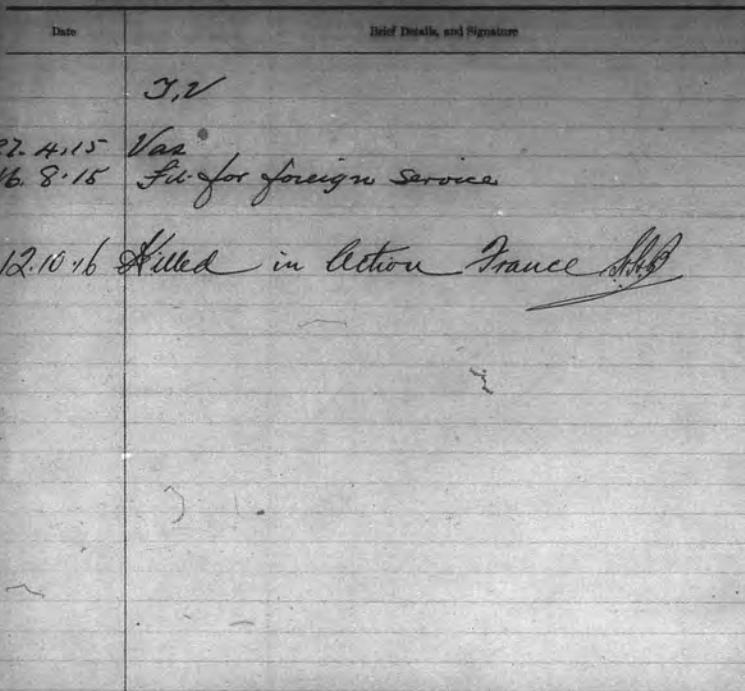 Date Brief Details, and Signature
T.V
27.4.15 Vac
16.8.15 Fit for foreign service
12.10.16 Killed in Action France